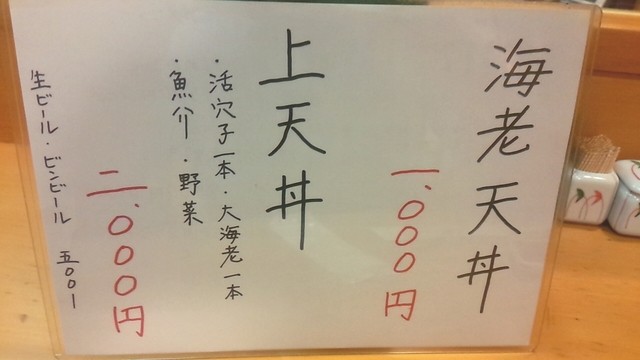 海老天丼
一、〇〇〇円
上天丼
・活穴子一本・大海老一本
・魚介・野菜
二、〇〇〇円
生ビール・ビンビール 五〇〇ー